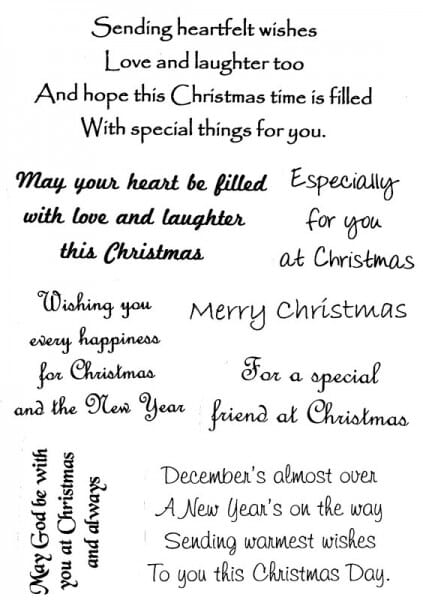 Sending heartfelt wishes
Love and laughter too
And hope this Christmas time is filled
With special things for you.
May your heart be filled
with love and laughter
this Christmas
Especially
for you
at Christmas
Wishing you
every happiness
for Christmas
and the New Year
Merry Christmas
For a special
friend at Christmas
May God be with
you at Christmas
and always
December's almost over
A New Year's on the way
Sending warmest wishes
To you this Christmas Day.